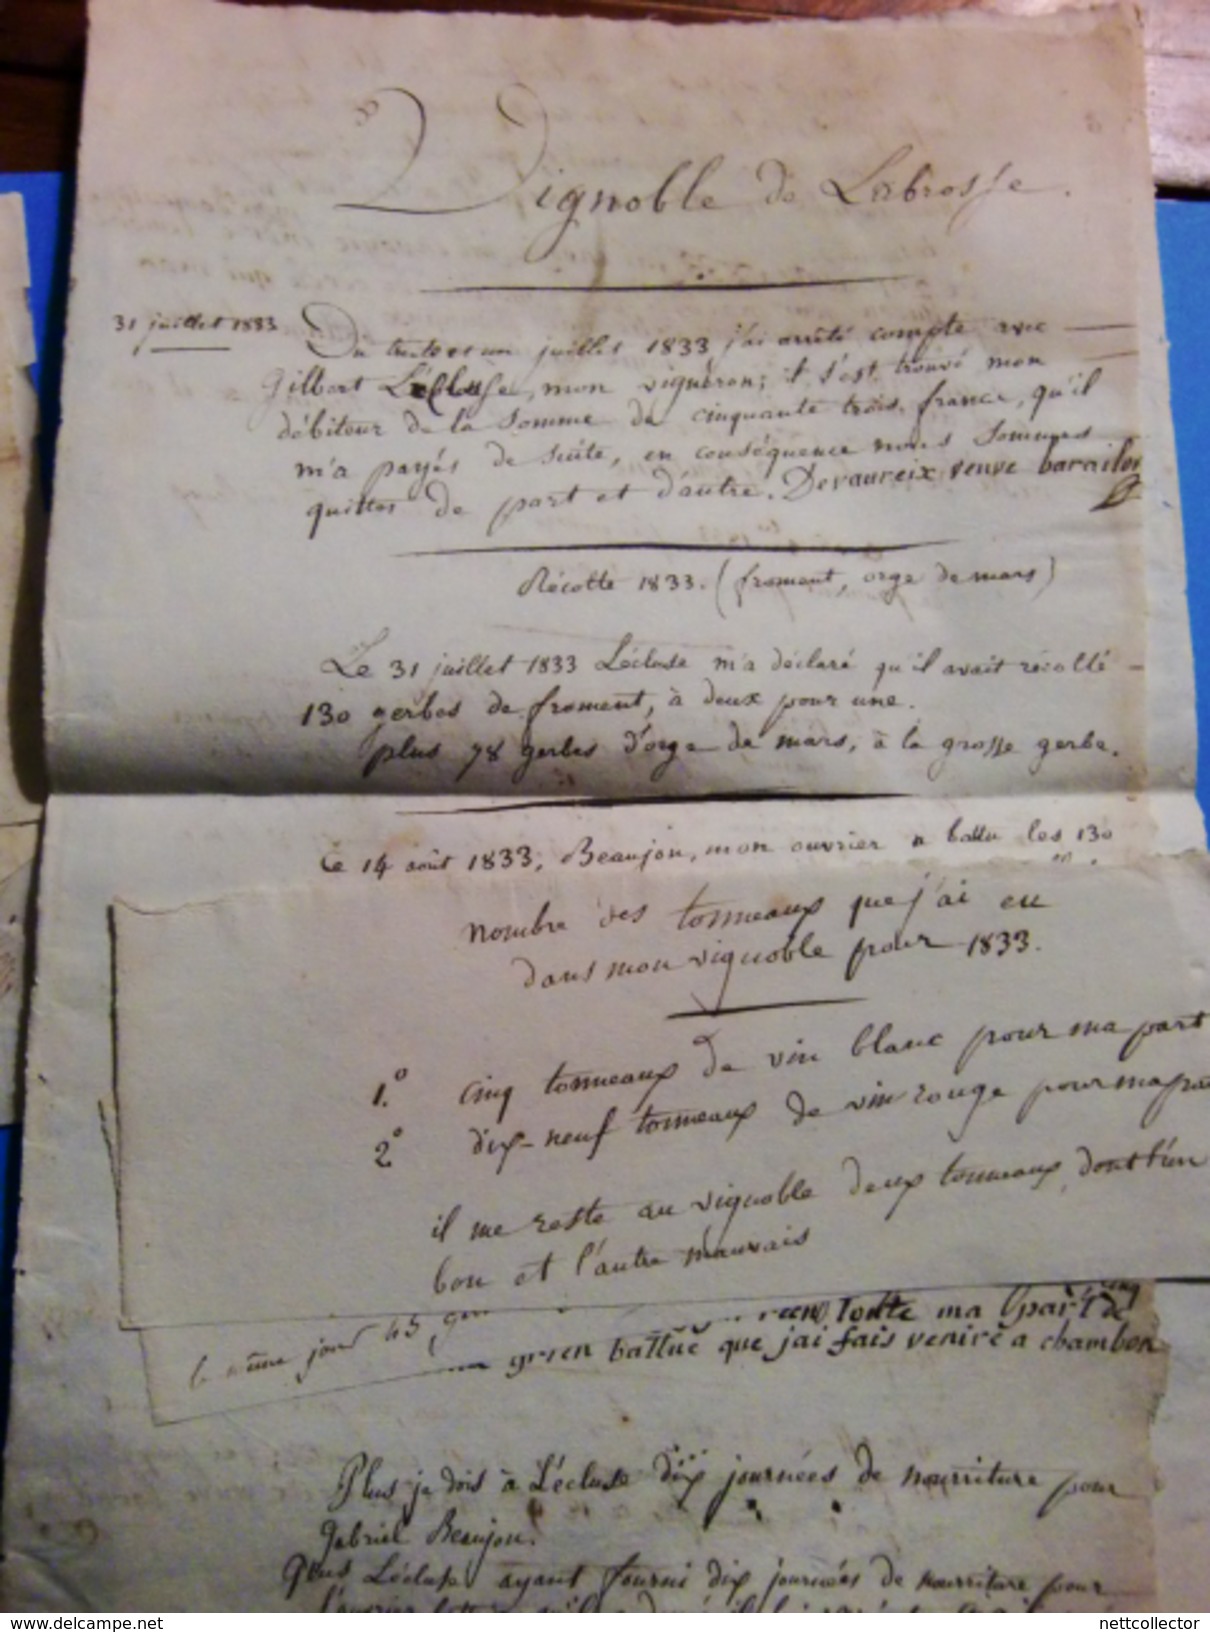 Vignoble de Labrosse.
31 juillet 1833
Du trente et un juillet 1833 j'ai arrêté compte avec
Gilbert Lécluse, mon vigneron; il s'est trouvé mon
débiteur de la somme de cinquante trois francs, qu'il
m'a payés de suite, en conséquence nous sommes
quittes de part et d'autre. Devaureix veuve barailon
Récolte 1833. (froment, orge de mars)
Le 31 juillet 1833 Lécluse m'a déclaré qu'il avait récolté
130 gerbes de froment, à deux pour une.
plus 78 gerbes d'orge de mars, à la grosse gerbe.
Le 14 août 1833, Beaujon, mon ouvrier a battu les 130
nombre des tonneaux que j'ai eu
dans mon vignoble pour 1833.
1.° cinq tonneaux de vin blanc pour ma part
2° dix-neuf tonneaux de vin rouge pour ma
il me reste au vignoble deux tonneaux, dont l'un
bon et l'autre mauvais
toute ma part de
le même jour 45
battue que jai fais venire a chambon
Plus je dois à Lécluse dix journées de nourriture pour
Gabriel Beaujon.
Plus Lécluse ayant fourni dix journées de nourriture pour
l'ouvrier
delcampe.net
nettcollector